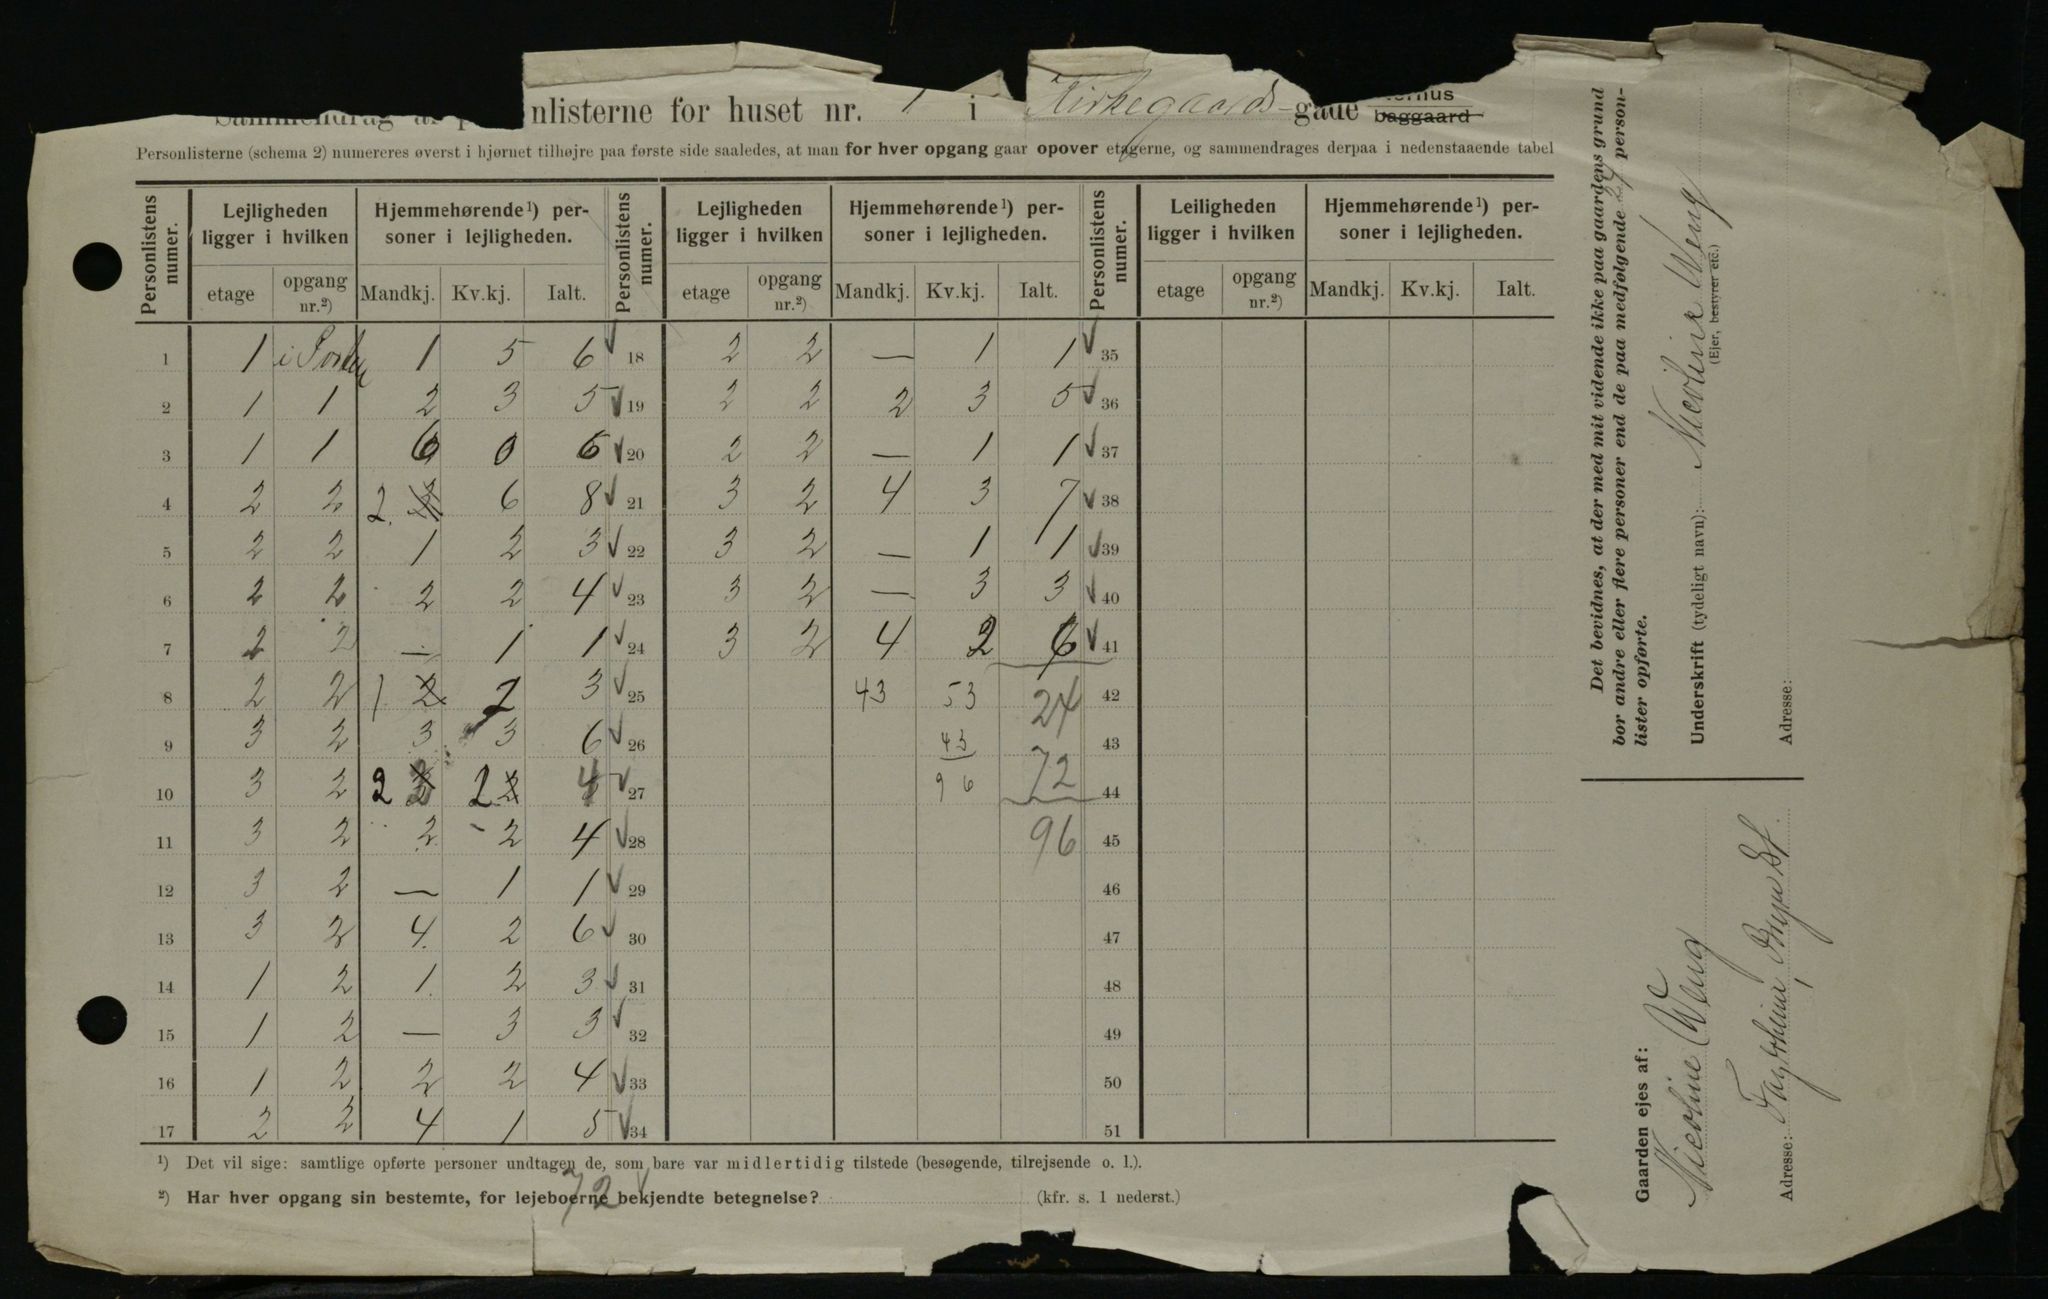 nlisterne for huset nr. 1 i Kirkegaards-gade
baggaard
Personlisterne (schema 2) numereres øverst i hjørnet tilhøjre paa første side saaledes, at man for hver opgang gaar opover etagerne, og sammendrages derpaa i nedenstaaende tabel
Personlistens numer. | Lejligheden ligger i hvilken | Hjemmehørende¹) personer i lejligheden. | Personlistens numer. | Lejligheden ligger i hvilken | Hjemmehørende¹) personer i lejligheden. | Personlistens numer. | Leiligheden ligger i hvilken | Hjemmehørende¹) personer i lejligheden.
etage | opgang nr.²) | Mandkj. | Kv.kj. | Ialt. | etage | opgang nr.²) | Mandkj. | Kv.kj. | Ialt. | etage | opgang nr.²) | Mandkj. | Kv.kj. | Ialt.
1 | 1 | i | 1 | 5 | 6 √ | 18 | 2 | 2 | — | 1 | 1 √ | 35
2 | 1 | 1 | 2 | 3 | 5 √ | 19 | 2 | 2 | 2 | 3 | 5 √ | 36
3 | 1 | 1 | 6 | 0 | 6 √ | 20 | 2 | 2 | — | 1 | 1 √ | 37
4 | 2 | 2 | 2 | 6 | 8 √ | 21 | 3 | 2 | 4 | 3 | 7 √ | 38
5 | 2 | 2 | 1 | 2 | 3 √ | 22 | 3 | 2 | — | 1 | 1 √ | 39
6 | 2 | 2 | 2 | 2 | 4 √ | 23 | 3 | 2 | — | 3 | 3 √ | 40
7 | 2 | 2 | — | 1 | 1 √ | 24 | 3 | 2 | 4 | 2 | 6 √ | 41
8 | 2 | 2 | 1 2 | 2 | 3 √ | 25 | 43 | 53 | 24 | 42
9 | 3 | 2 | 3 | 3 | 6 √ | 26 | 43 | 43
10 | 3 | 2 | 2 | 2 2 | 4 √ | 27 | 96 | 72 | 44
11 | 3 | 2 | 2 | 2 | 4 √ | 28 | 96 | 45
12 | 3 | 2 | — | 1 | 1 √ | 29 | 46
13 | 3 | 2 | 4 | 2 | 6 √ | 30 | 47
14 | 1 | 2 | 1 | 2 | 3 √ | 31 | 48
15 | 1 | 2 | — | 3 | 3 √ | 32 | 49
16 | 1 | 2 | 2 | 2 | 4 √ | 33 | 50
17 | 2 | 2 | 4 | 1 | 5 √ | 34 | 51
¹) Det vil sige: samtlige opførte personer undtagen de, som bare var midlertidig tilstede (besøgende, tilrejsende o. l.).
²) Har hver opgang sin bestemte, for lejeboerne bekjendte betegnelse? (kfr. s. 1 nederst.)
72 √
Det bevidnes, at der med mit vidende ikke paa gaardens grund
bor andre eller flere personer end de paa medfølgende 24 person-
lister opførte.
Underskrift (tydeligt navn): Nicoline Weng
(Ejer, bestyrer etc.)
Adresse:
Gaarden ejes af:
Nicoline Weng
Adresse: